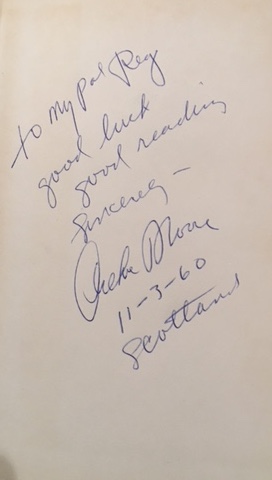 to my pal Reg
good luck
good reading
Sincerely —
Archie Moore
11-3-60
Scotland